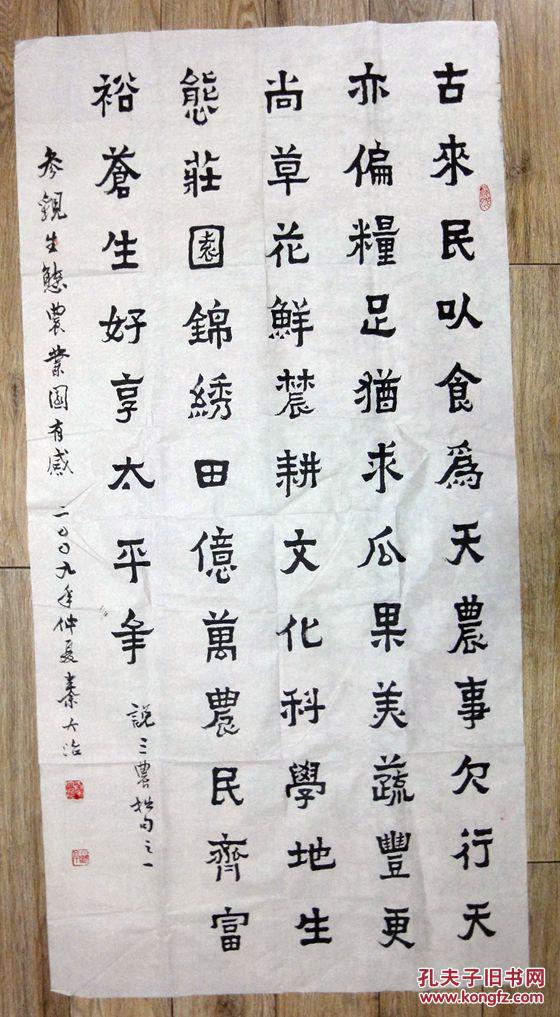 古來民以食爲天農事欠行天
亦偏糧足猶求瓜果美蔬豐更
尚草花鮮農耕文化科學地生
態莊園錦綉田億萬農民齊富
裕蒼生好享太平年
說三農拙句之一
参觀生態農業園有感 二〇〇九年仲夏秦大治
孔夫子旧书网
www.kongfz.com